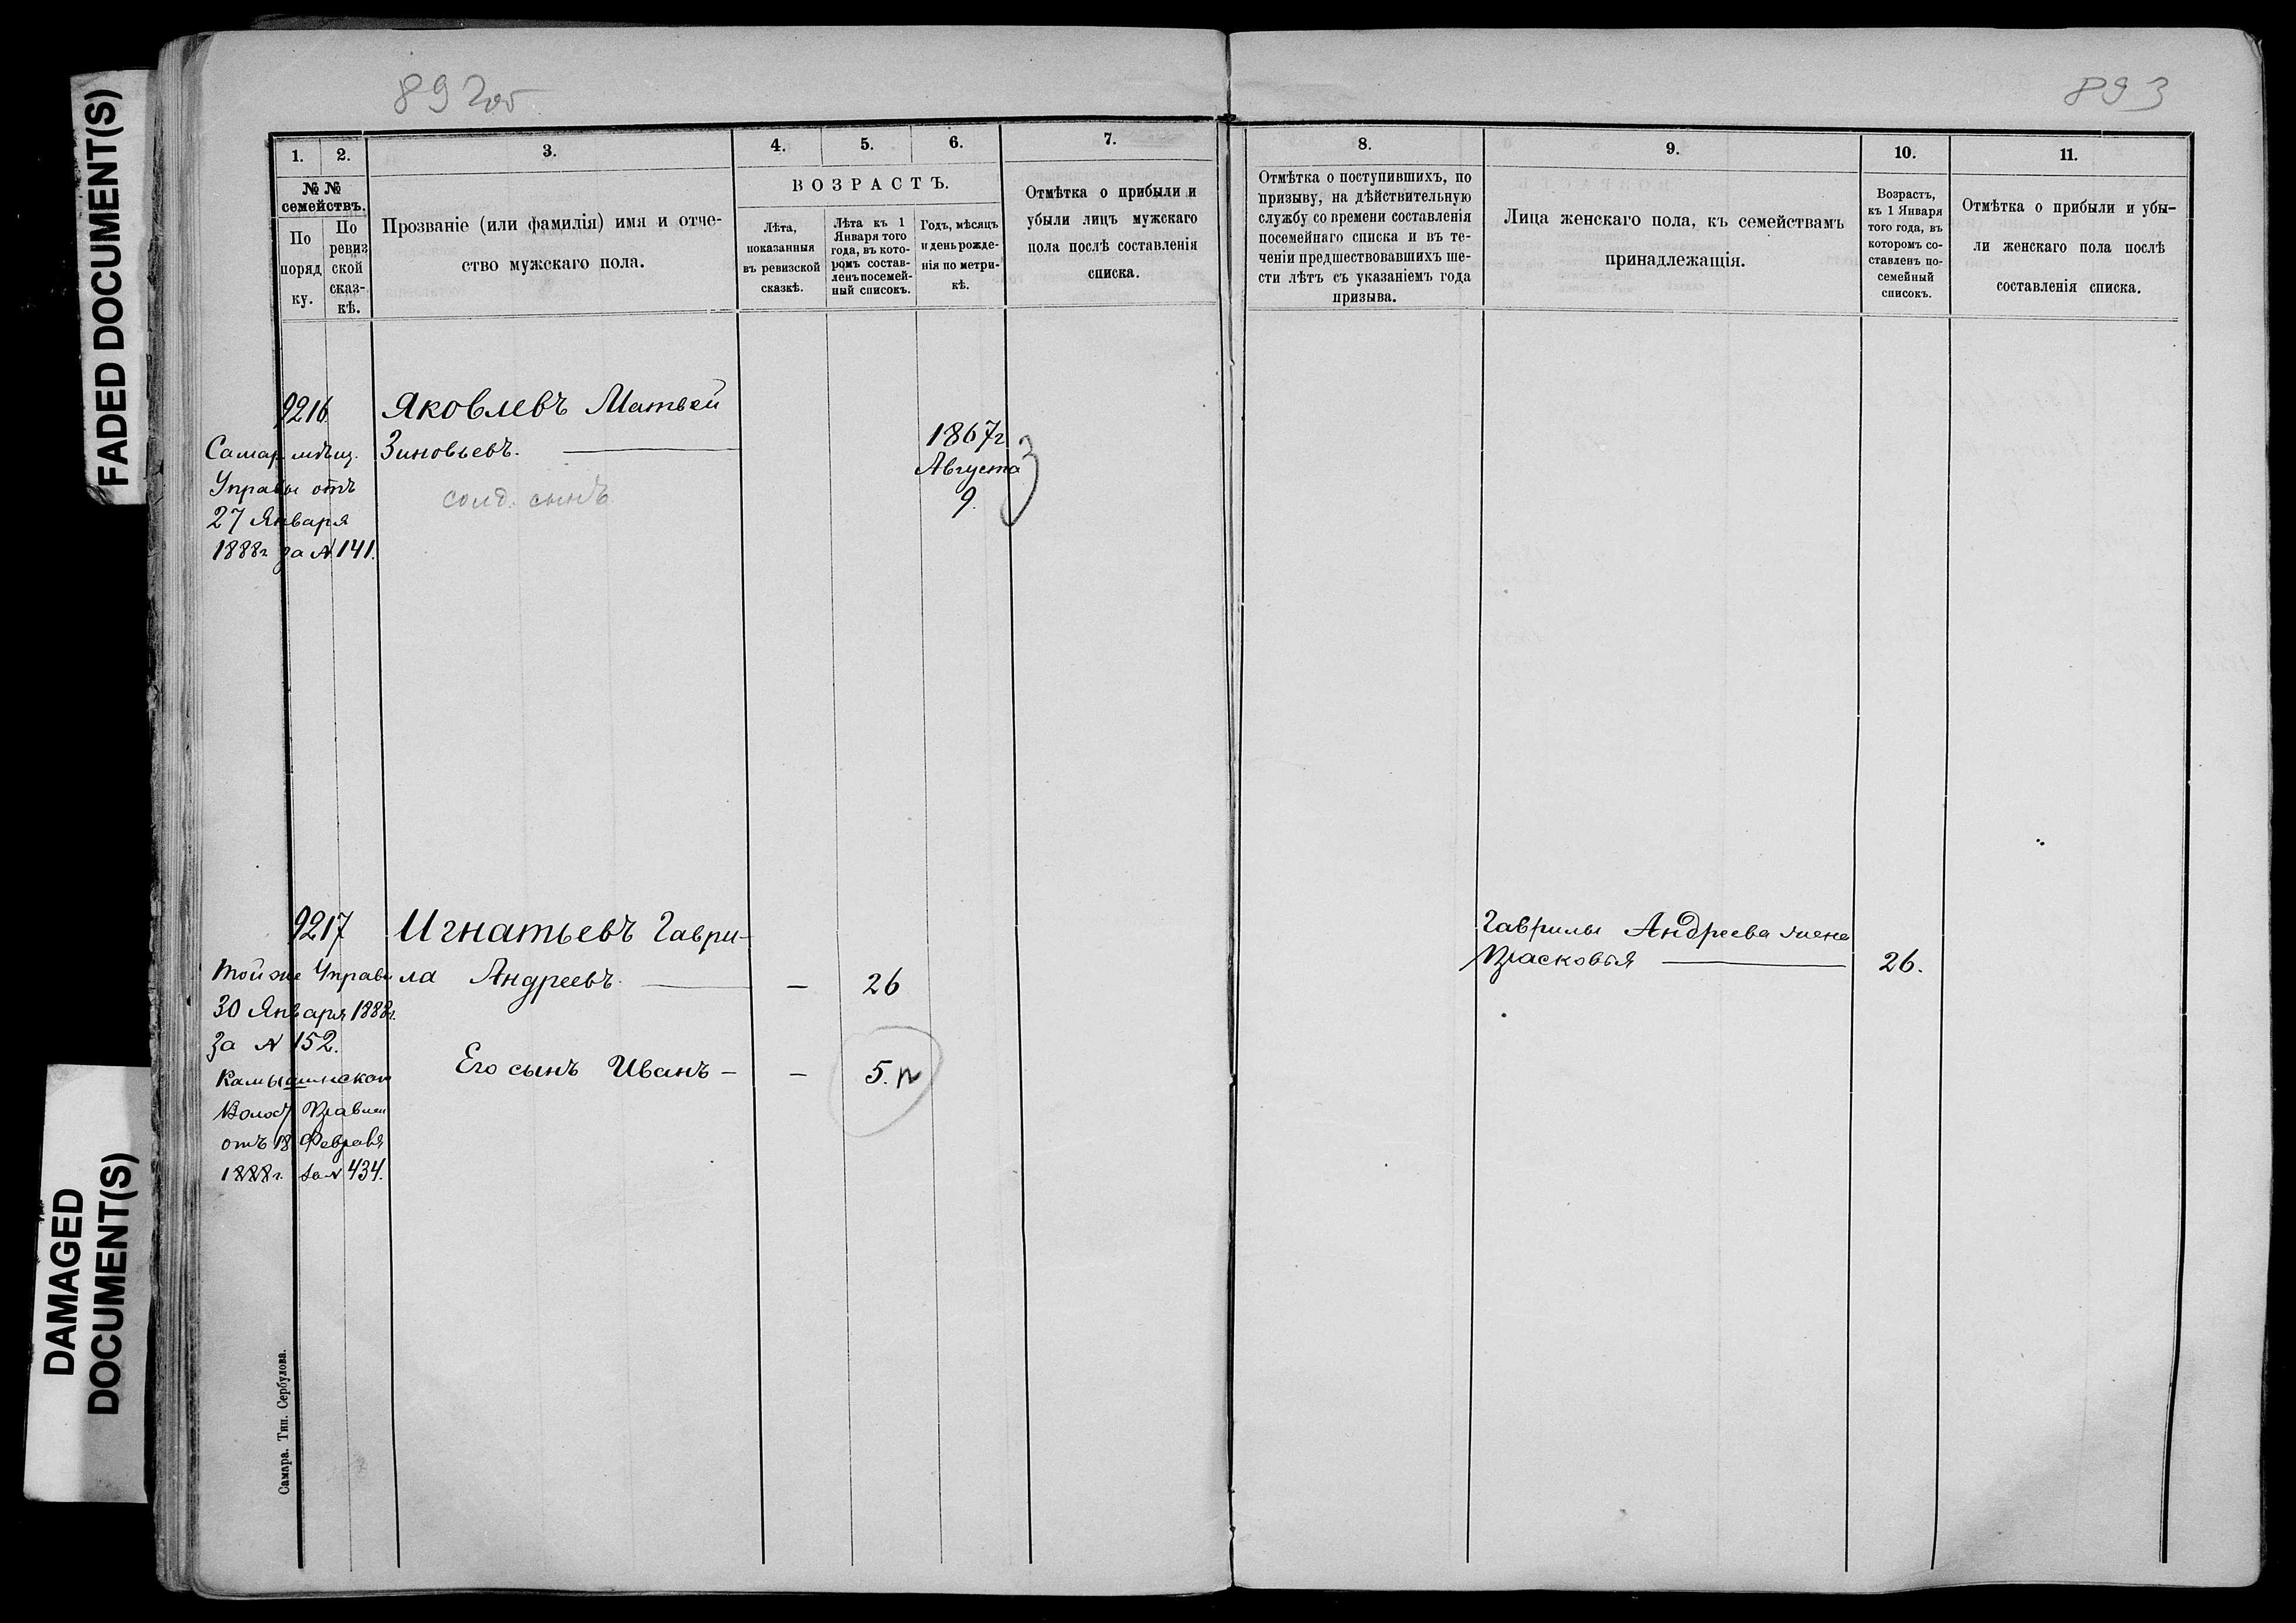 FADED DOCUMENT(S)
DAMAGED
DOCUMENT(S)
892об
1.
2.
3.
4.
5.
6.
7.
№ №
семействъ.
По
поряд
ку.
По
ревиз
ской
сказ-
кѣ.
Прозваніе (или фамилія) имя и отче-
ство мужскаго пола.
ВОЗРАСТЪ.
Лѣта,
показанныя
въ ревизской
сказкѣ.
Лѣта къ 1
Января того
года, въ кото-
ромъ состав-
ленъ посемей-
ный списокъ.
Годъ, мѣсяцъ
и день рожде-
нія по метри-
кѣ.
Отмѣтка о прибыли и
убыли лицъ мужскаго
пола послѣ составленія
списка.
9216
Самар. мѣщ.
Управы отъ
27 Января
1888г за № 141.
Яковлевъ Матвей
Зиновьевъ.
солд. сынъ.
1867г
Августа
9.
9217
Той же Управы
30 Января 1888г.
за № 152.
Камышинскаго
Волост Правлен
отъ 18 Февраля
1888г. за № 434.
Игнатьевъ Гаври-
ла Андреевъ.
— 26
Его сынъ Иванъ -
— 5.
Самара. Тип. Сербулова.
893
8.
9.
10.
11.
Отмѣтка о поступившихъ, по
призыву, на дѣйствительную
службу со времени составленія
посемейнаго списка и въ те-
ченіи предшествовавшихъ ше-
сти лѣтъ съ указаніемъ года
призыва.
Лица женскаго пола, къ семействамъ
принадлежащія.
Возрастъ,
къ 1 Января
того года, въ
которомъ со-
ставленъ по-
семейный
списокъ.
Отмѣтка о прибыли и убы-
ли женскаго пола послѣ
составленія списка.
Гаврилы Андреева жена
Прасковья
26.